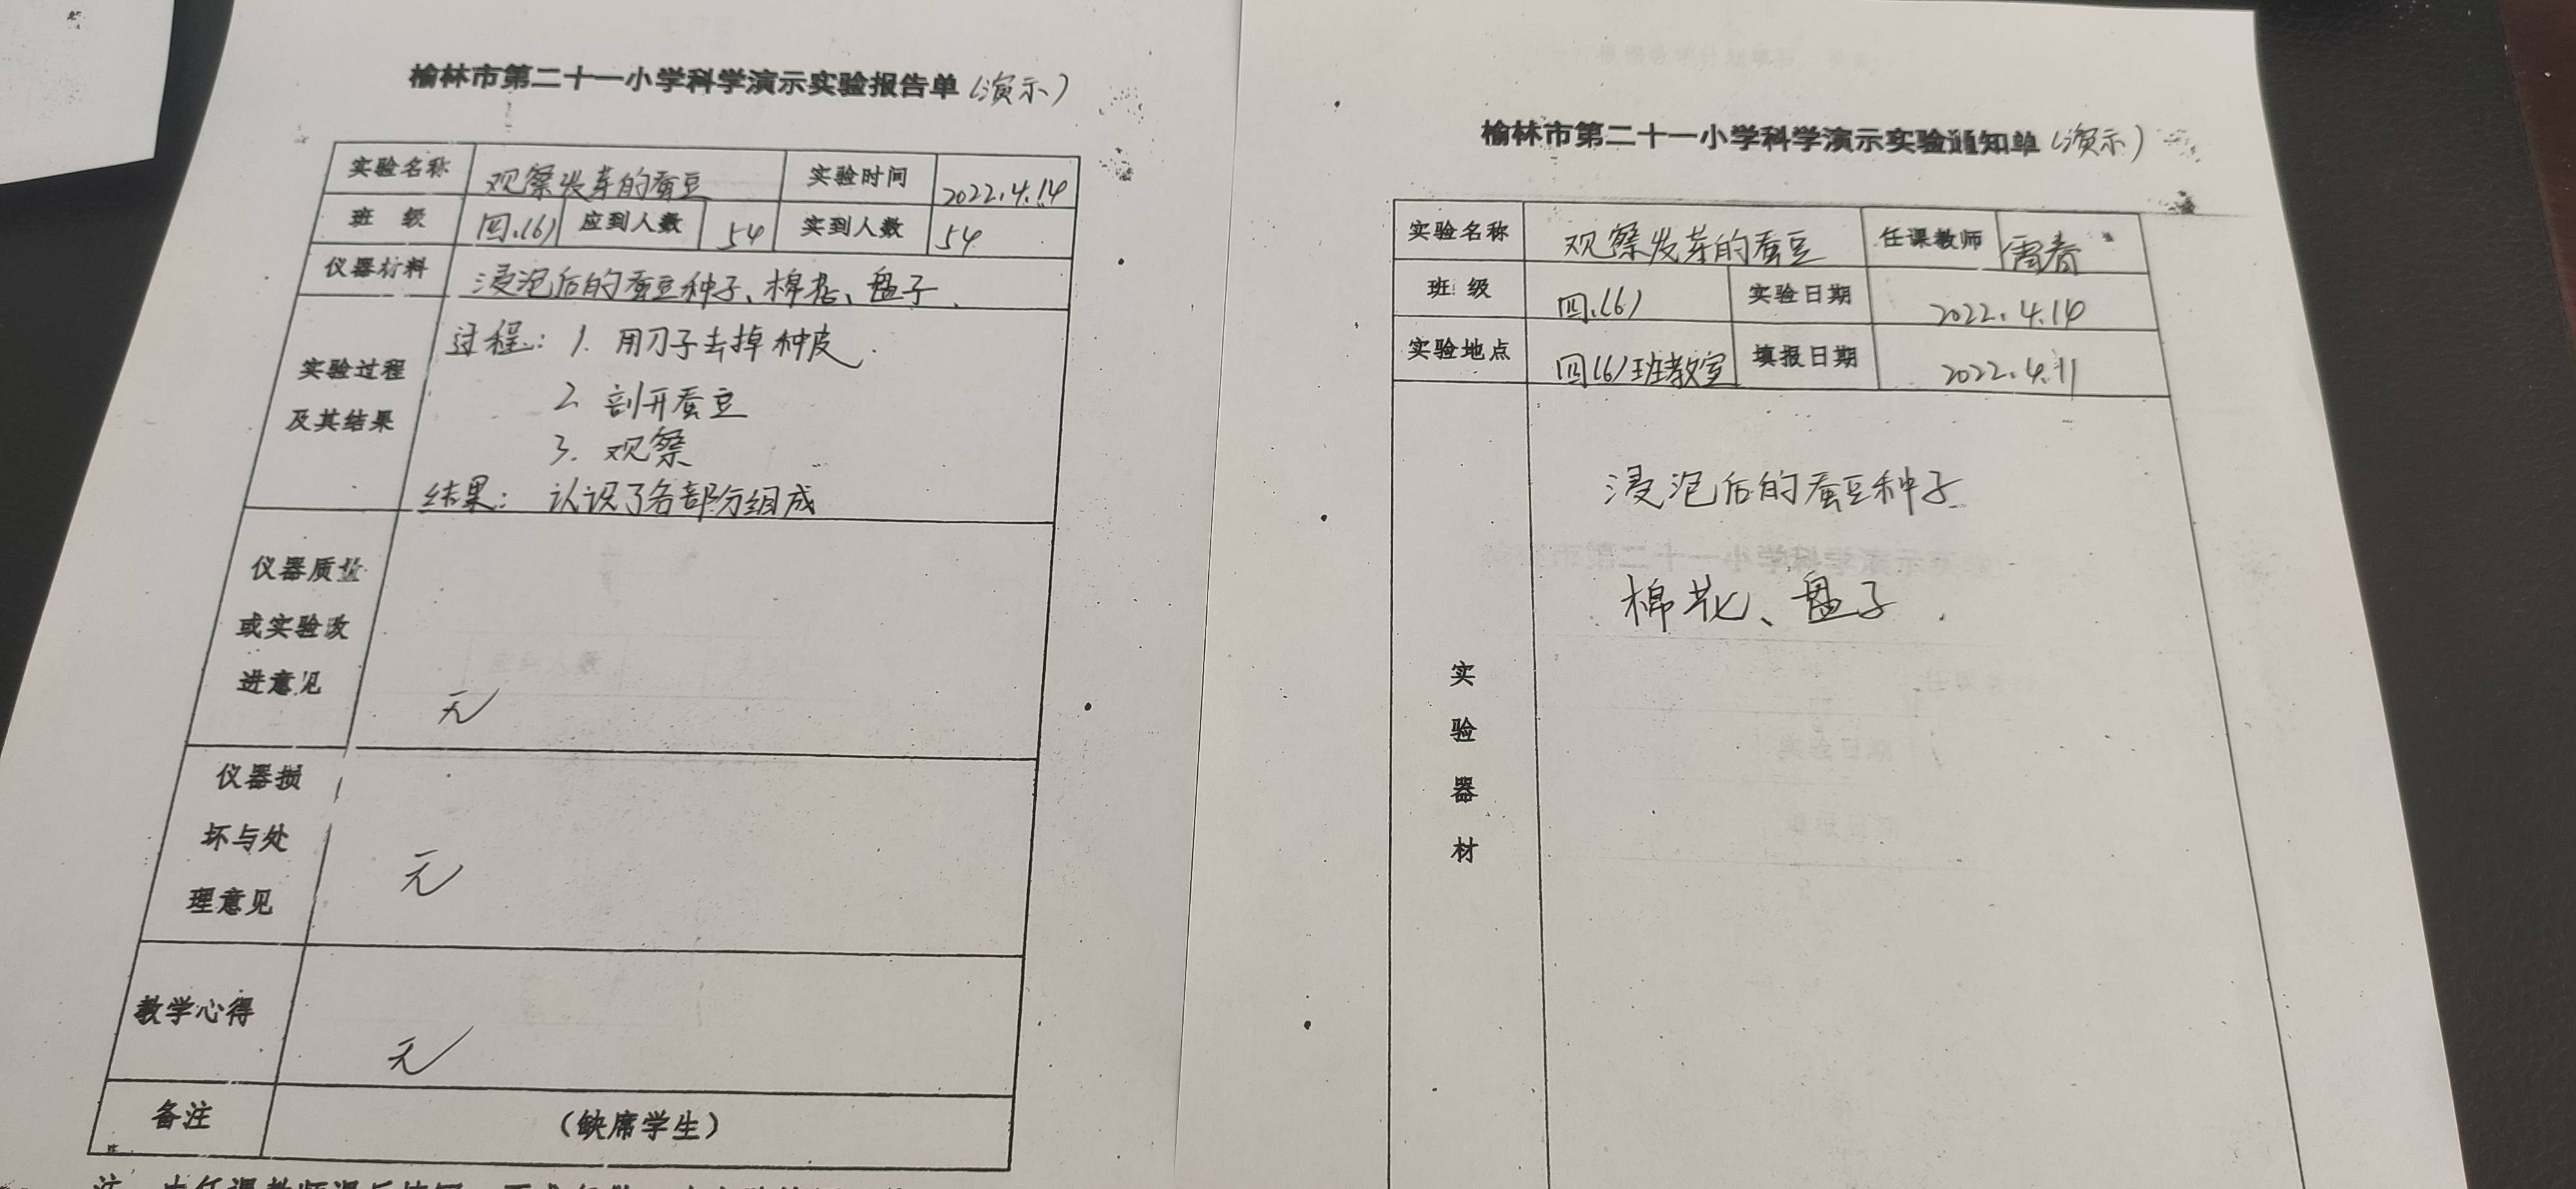 榆林市第二十一小学科学演示实验报告单(演示)
实验名称 观察发芽的蚕豆 实验时间 2022.4.14
班 级 四.(6) 应到人数 54 实到人数 54
仪器材料 浸泡后的蚕豆种子、棉花、盘子.
实验过程
及其结果
过程: 1. 用刀子去掉种皮.
2 剖开蚕豆
3. 观察
结果: 认识了各部分组成
仪器质量
或实验改
进意见
无
仪器损
坏与处
理意见
无
教学心得
无
备注 (缺席学生)
榆林市第二十一小学科学演示实验通知单(演示)
实验名称 观察发芽的蚕豆 任课教师
班 级 四.(6) 实验日期 2022.4.14
实验地点 四(6)班教室 填报日期 2022.4.11
实
验
器
材
浸泡后的蚕豆种子
棉花、盘子.